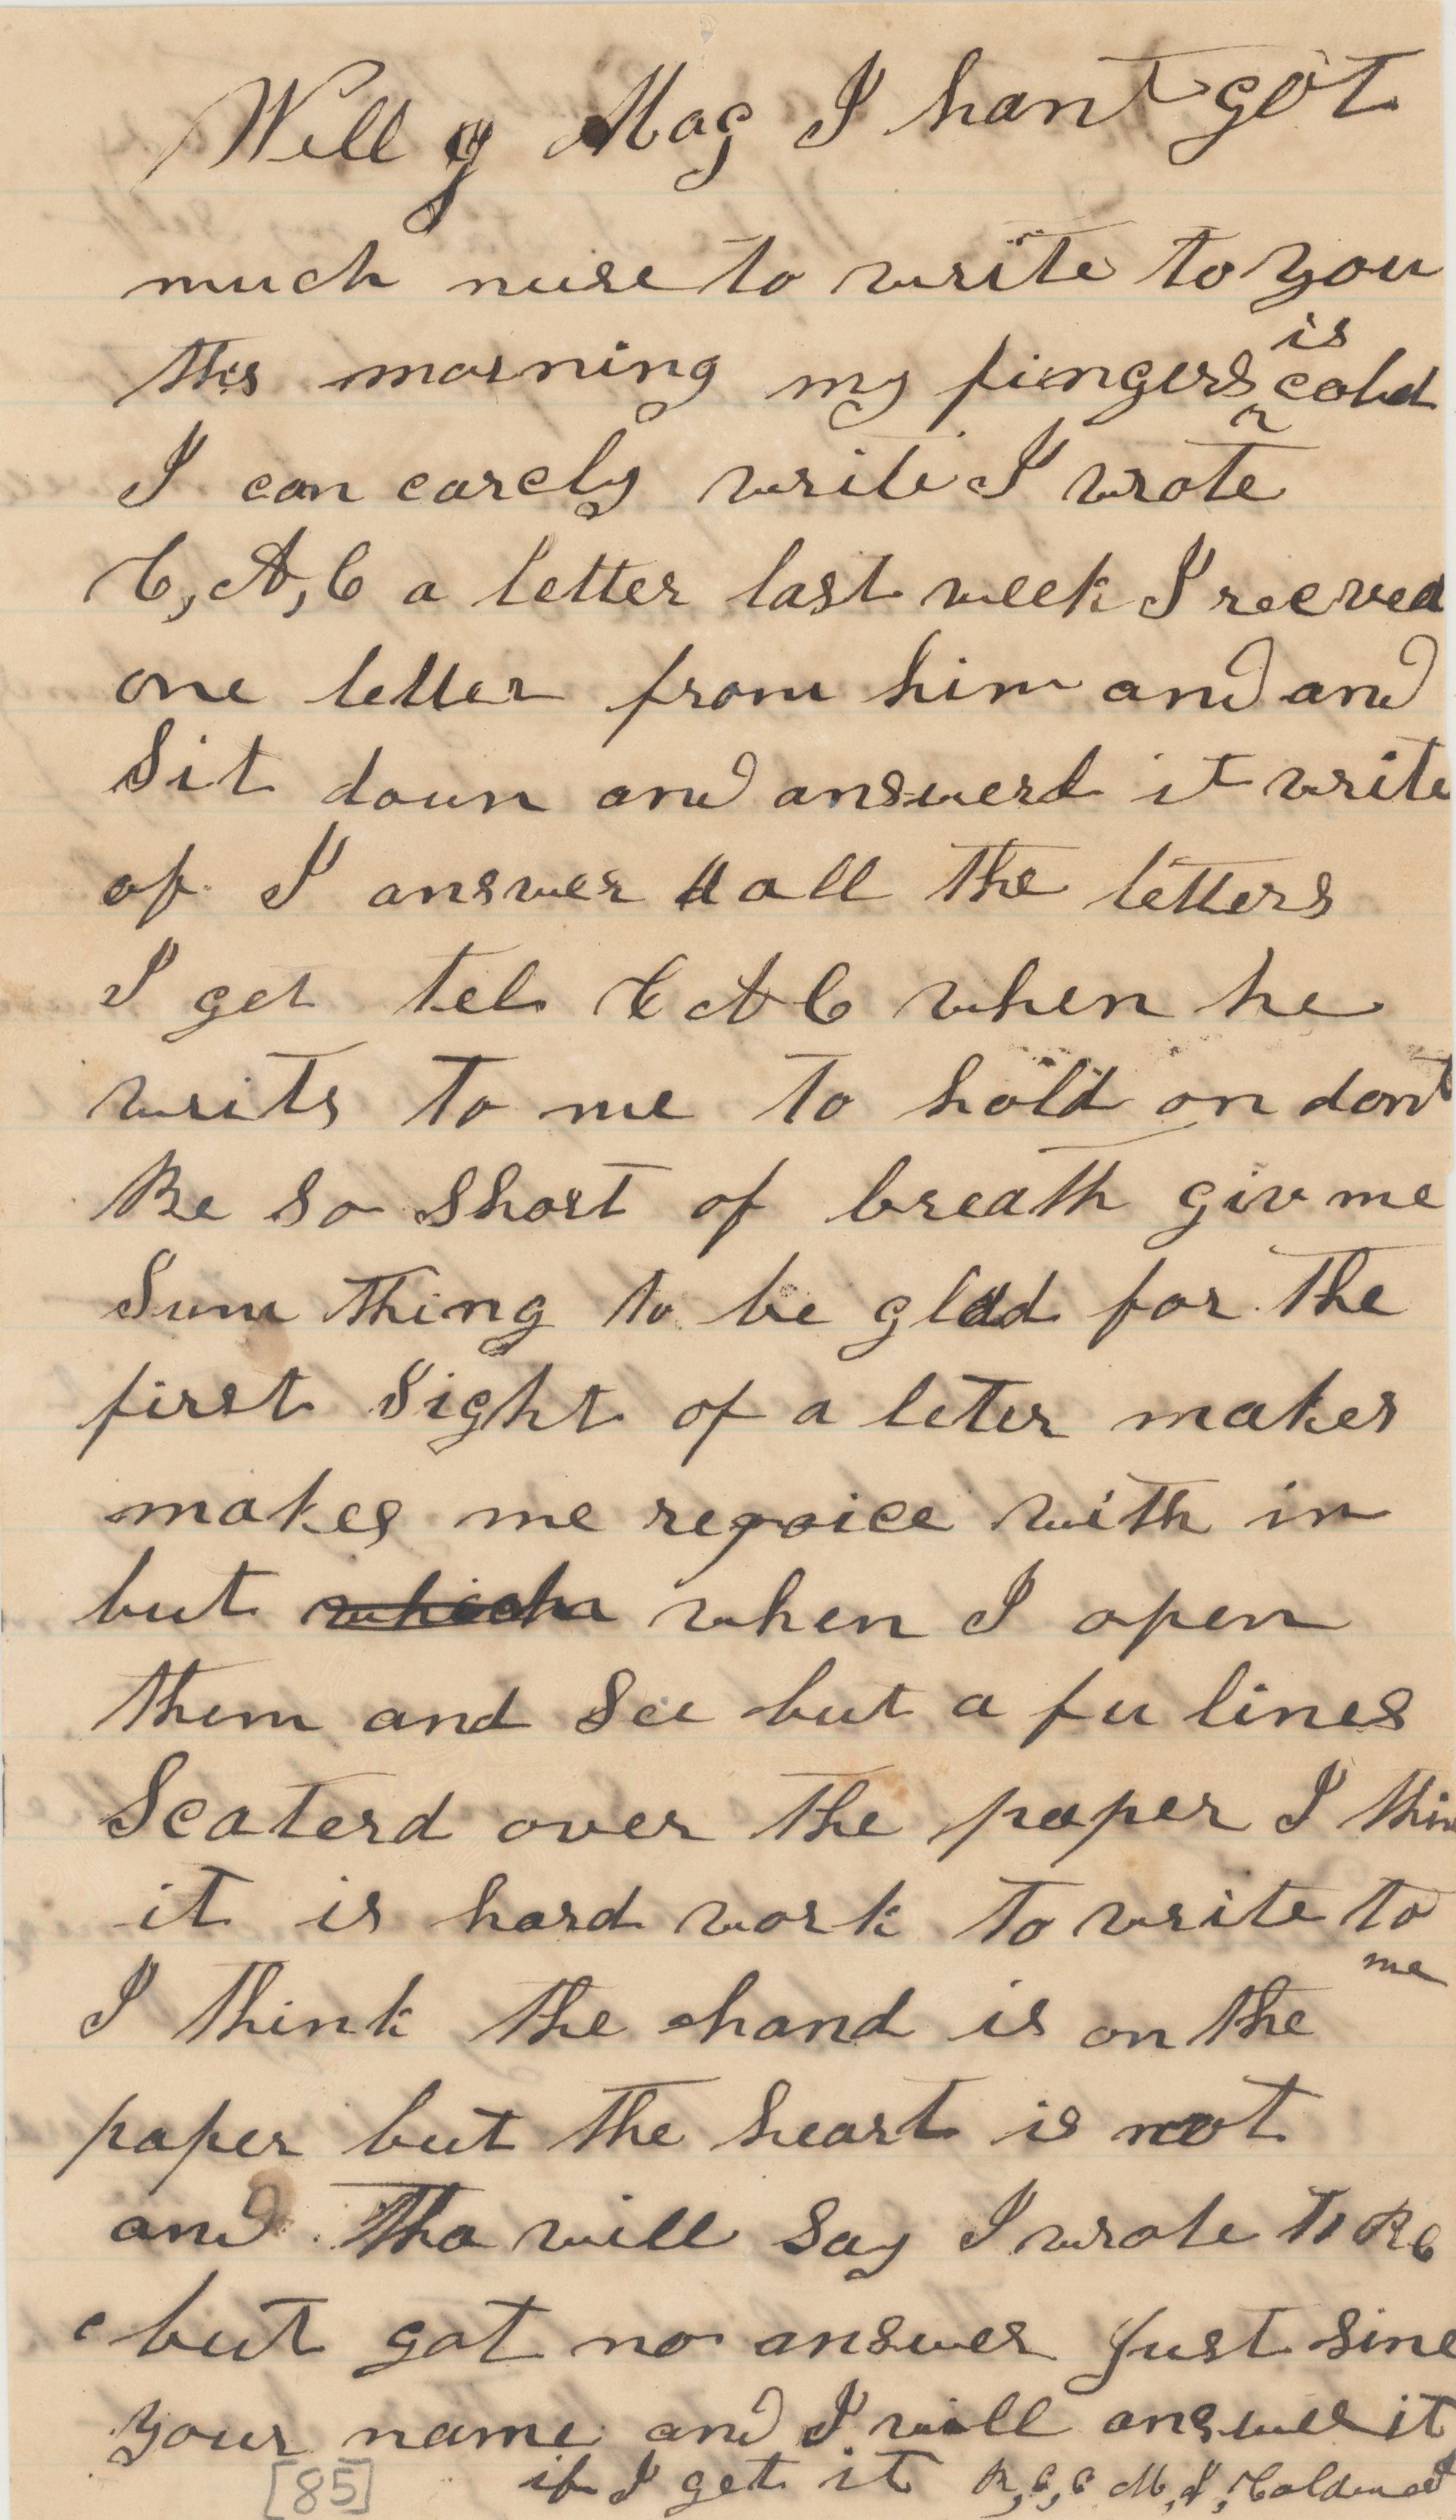 Will y Mag I hant got
much nuse to write to you
this morning my fingers is cold
I can carcly write I wrote
C, A, C a letter last week I reeved
one letter from him and and
Sit down and answerd it write
of I answer all the letters
I get tel C A C when he
writs to me to hold on dont
Be so Short of breath giv me
Sum thing to be glad for the
first Sight of a leter makes
makes me rejoice with in
but which when I open
them and See but a fu lines
Scaterd over the paper I thin
it is hard work to write to me
I think the hand is on the
paper but the heart is not
and Tha will Say I wrote To R C
C but got no answer Just Sine
your name and I will answer it
if I get it R, C, C M, J,
[85]